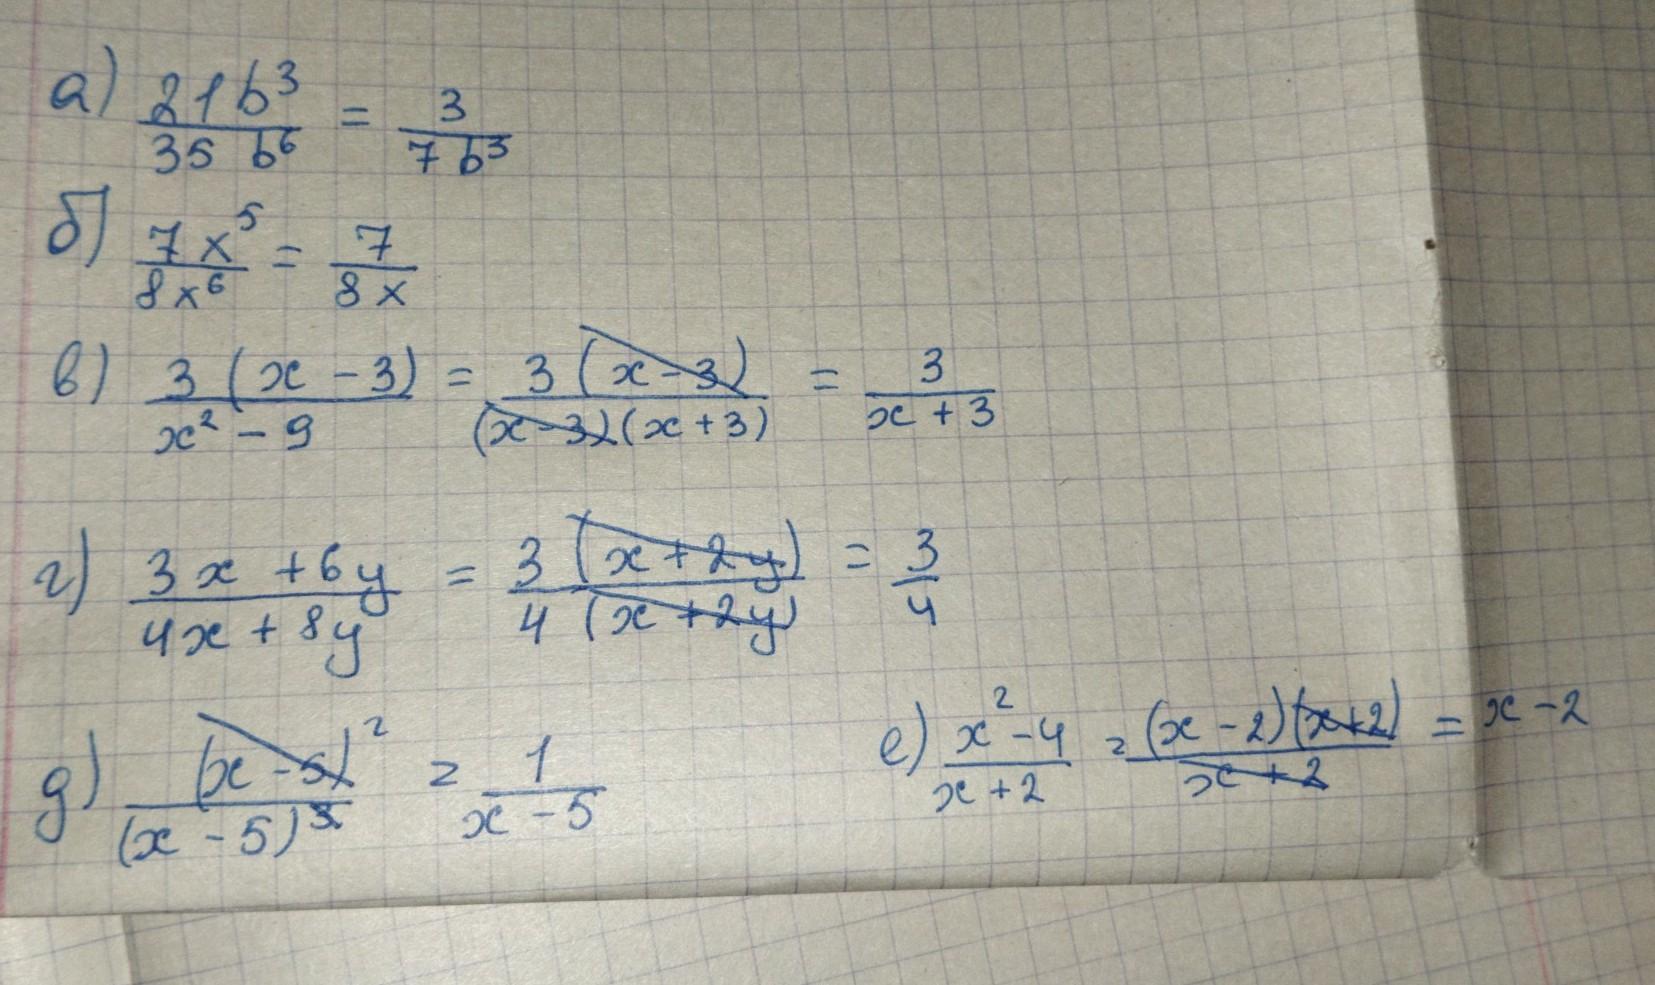 а) 21b³/35b⁶ = 3/7b³
б) 7x⁵/8x⁶ = 7/8x
в) 3(x-3)/x²-9 = 3(x-3)/(x-3)(x+3) = 3/x+3
г) 3x+6y/4x+8y = 3(x+2y)/4(x+2y) = 3/4
д) (x-5)²/(x-5)³ = 1/x-5
е) x²-4/x+2 = (x-2)(x+2)/x+2 = x-2